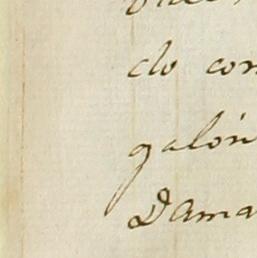 do con
galón
Dama